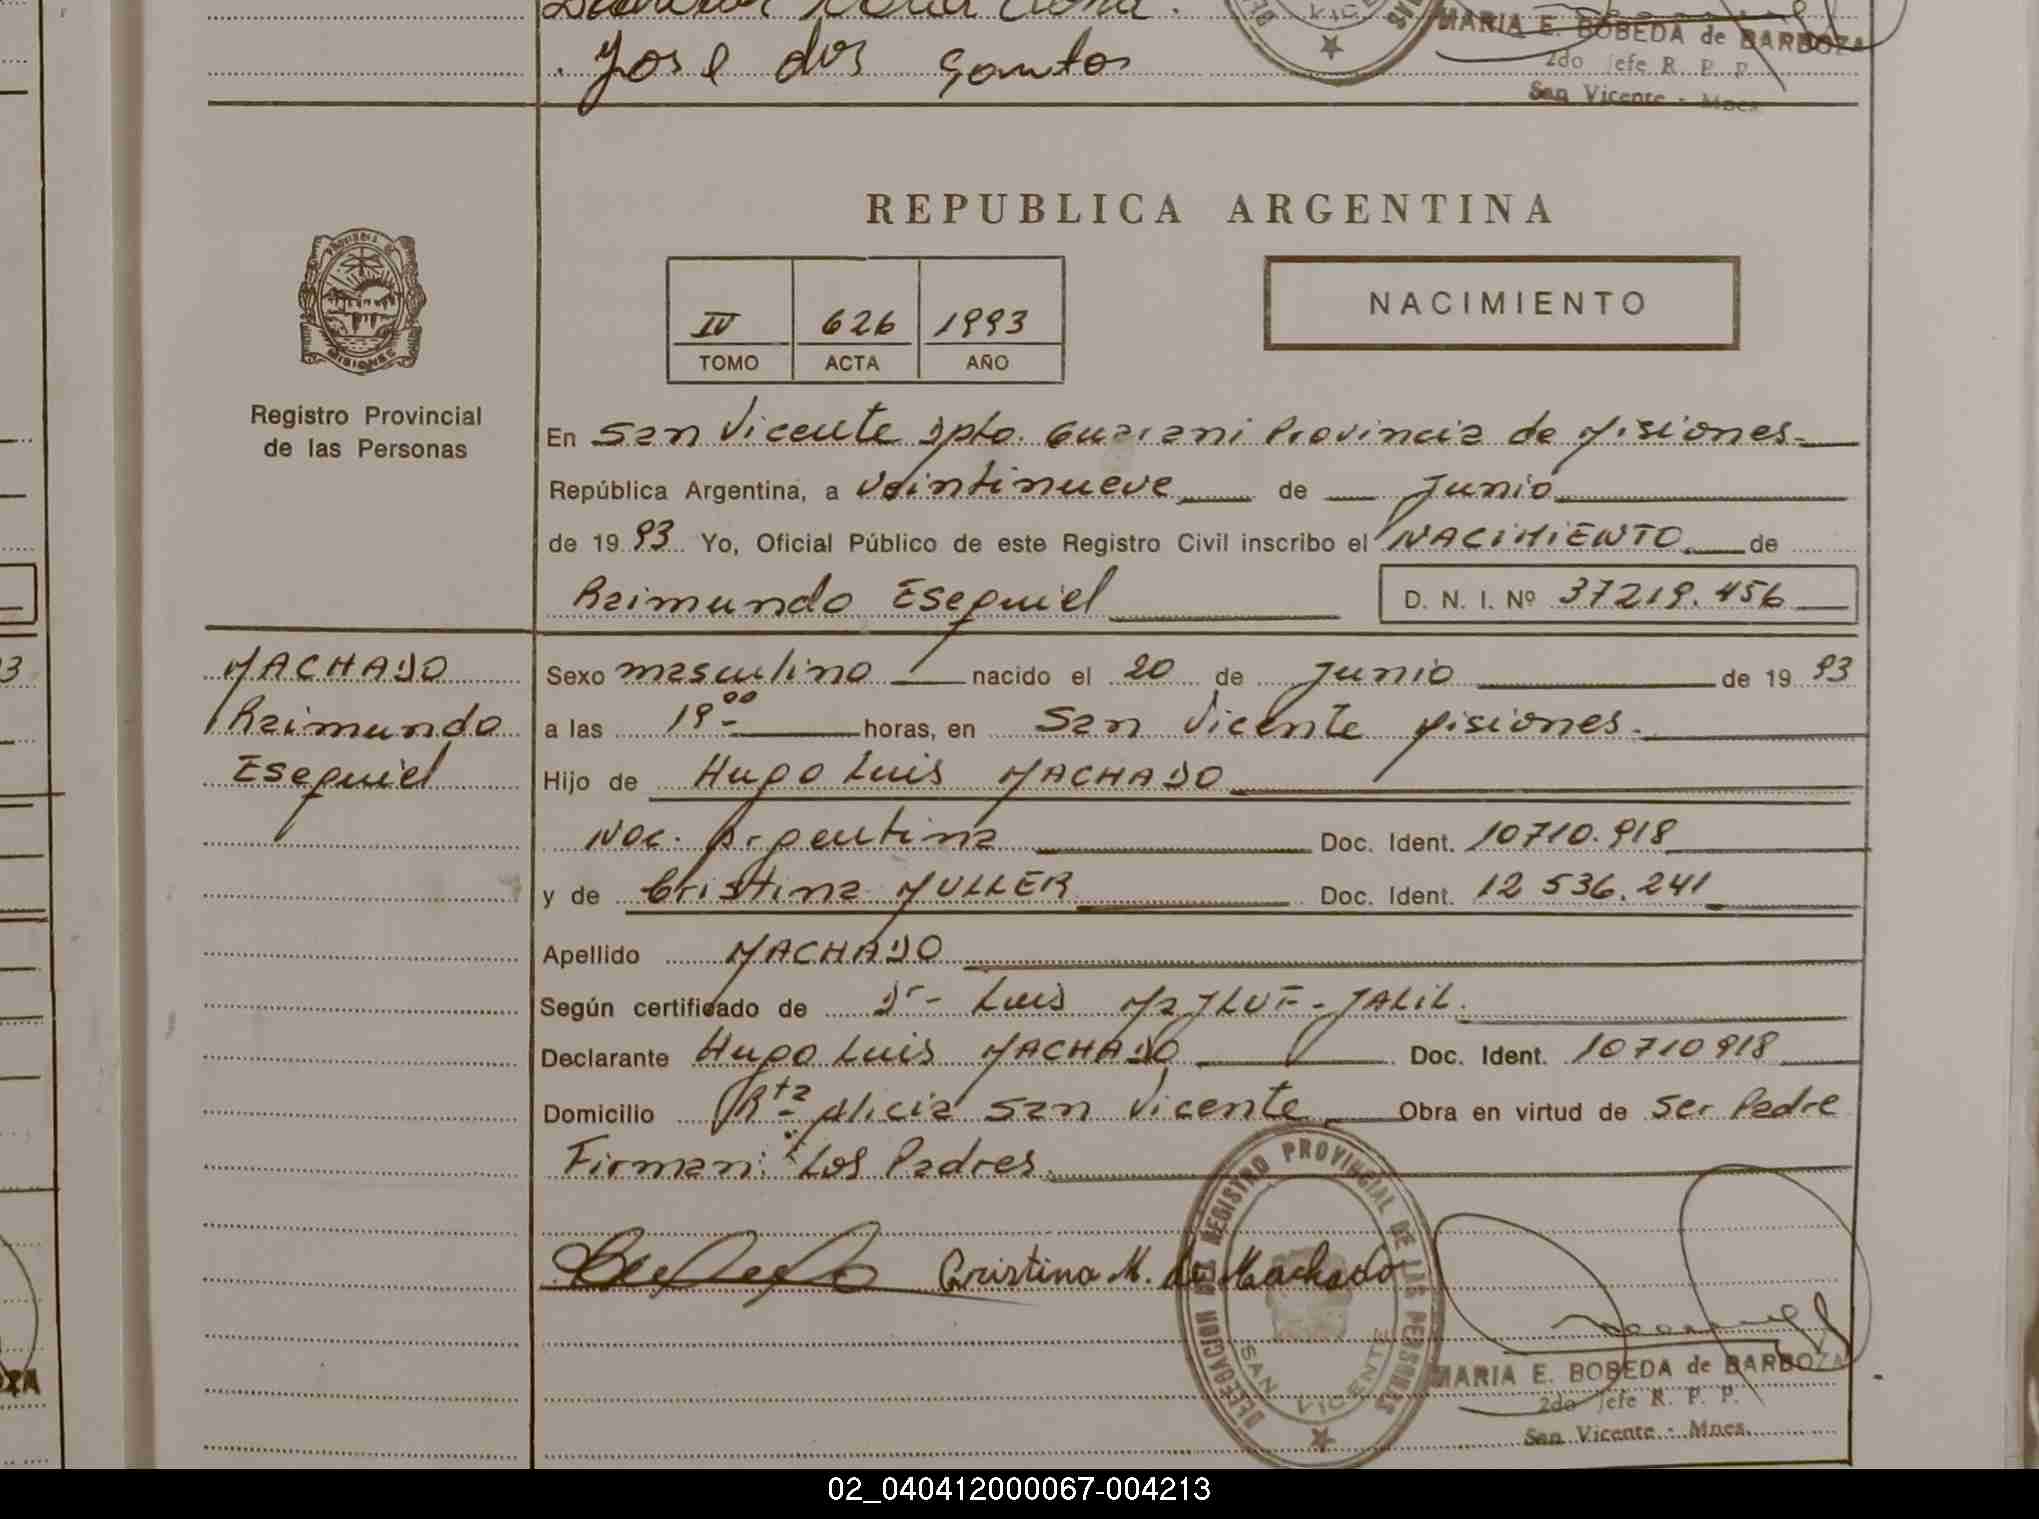 Jose dos Santos
MARIA E. BOBEDA de BARBOZA
2do Jefe R. P. P.
San Vicente - Mnes.
REPUBLICA ARGENTINA
IV 626 1993
TOMO ACTA AÑO
NACIMIENTO
MISIONES
Registro Provincial
de las Personas
En San Vicente Dpto. Guarani Provincia de Misiones
República Argentina, a veintinueve de Junio
de 19 93 Yo, Oficial Público de este Registro Civil inscribo el NACIMIENTO de
Raimundo Esequiel D. N. I. Nº 37219.456
MACHADO
Raimundo
Esequiel
Sexo masculino nacido el 20 de Junio de 19 93
a las 19 00 horas, en San Vicente Misiones.
Hijo de Hugo Luis MACHADO
Nac. Argentina Doc. Ident. 10710.918
y de Cristina MULLER Doc. Ident. 12 536.241
Apellido MACHADO
Según certificado de Dr- Luis MAJLUF-JALIL.
Declarante Hugo Luis MACHADO Doc. Ident. 10710918
Domicilio Rta Alicia San Vicente Obra en virtud de Ser Padre
Firman: Los Padres.
Cristina M. de Machado
DELEGACION DEL REGISTRO PROVINCIAL DE LAS PERSONAS
SAN VICENTE
MARIA E. BOBEDA de BARBOZA
2do Jefe R. P. P.
San Vicente - Mnes.
02_040412000067-004213